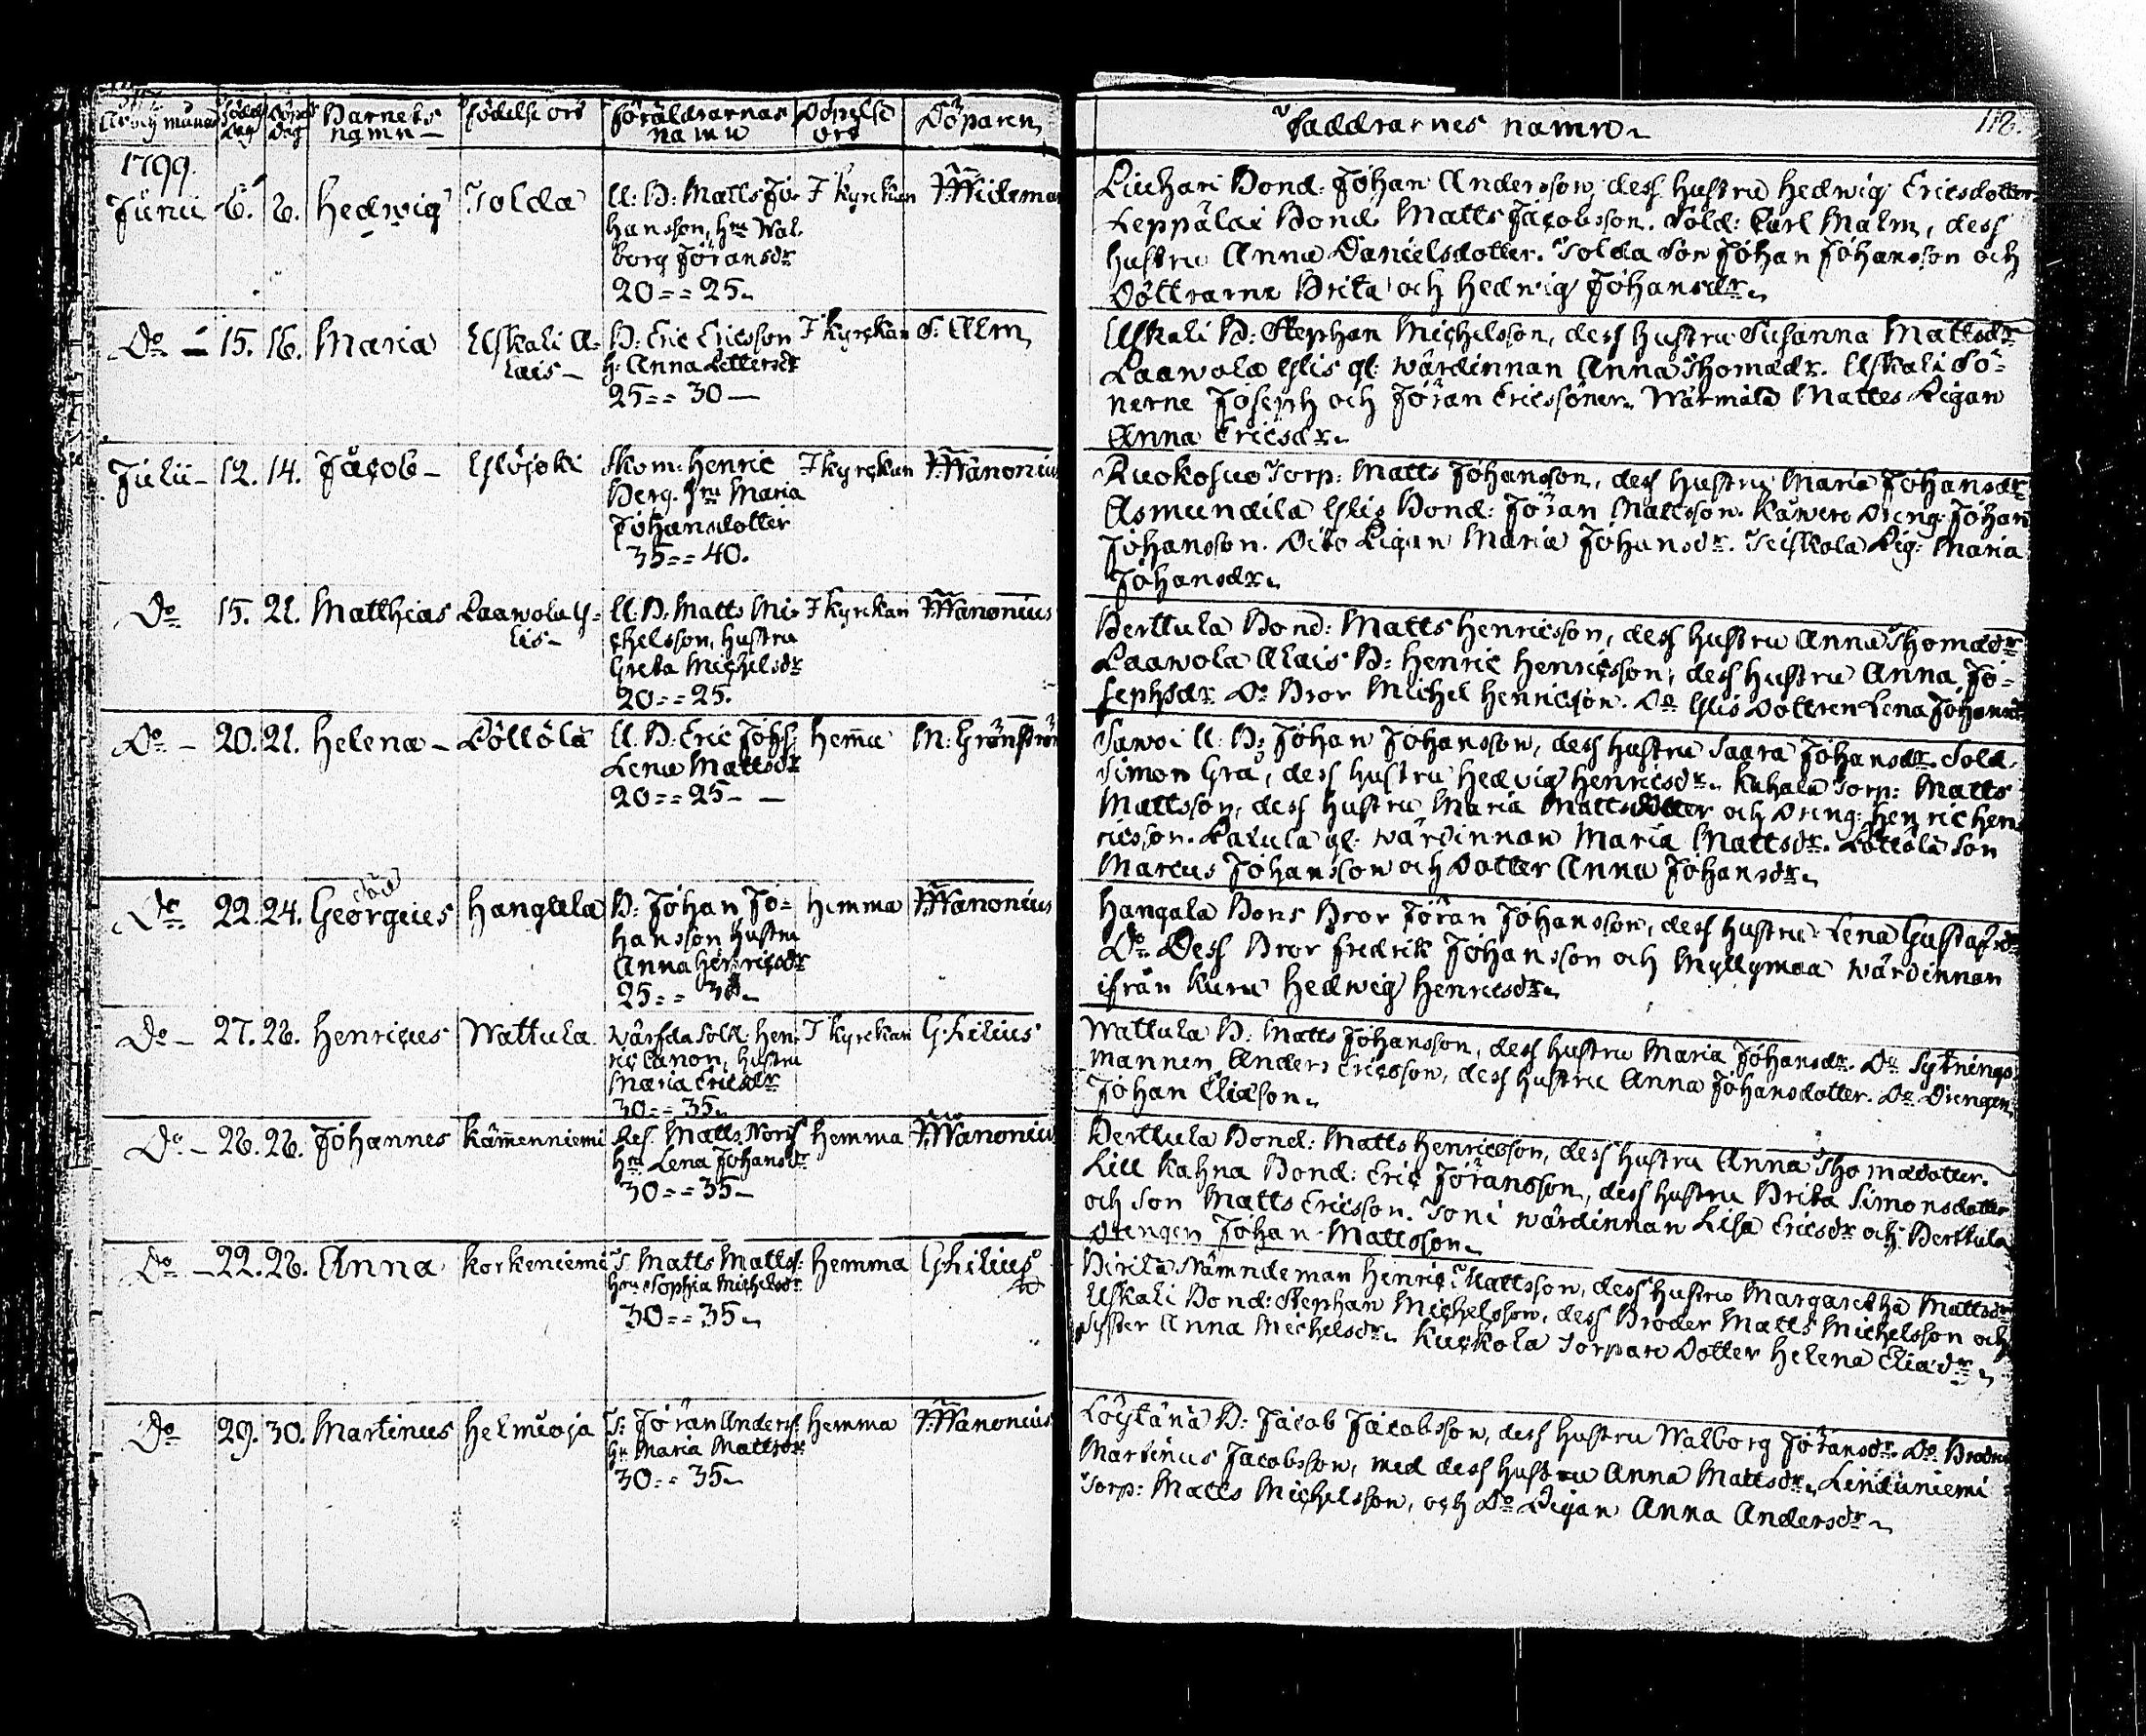 Barnets namn
födelse ort
föräldrarnas namn
Döpelse ort
Döparen
1799.
Junii 6. 8. Hedwig Tolda U: B: Matts Jo- I kyrckan
hansson, Hu Wal-
borg Jöransdr
20 = = 25
Do 15. 16. Maria Uskali A- B: Eric Ericsson I kyrckan S: Alm
lais H: Anna
25 = = 30
Julii 12. 14. Jacob Ylöjoki Henric I kyrckan Wanonius
Berg. Hru Maria
Johansdotter
35 = = 40.
Do 15. 21. Matthias Laawola Y- U: B: Matts Mi- I kyrckan Wanonius
lis chelsson, hustru
Greta Michelsdr
20 = = 25.
Do 20. 21. Helena Löllölä U. B: Eric Johs: Hema M: Grönström
Lena Mattsdr
20 = = 25
Do 22. 24. Georgius Hangala B: Johan Jo- hemma Wanonius
hansson hustru
Anna Henricsdr
25 = = 30
Do 27. 28. Henricus Wattula Wärfda Sold: Hen- I kyrckan G: Lilius
ric Canon, hustru
Maria Ericsdr
30 = = 35
Do 28. 28. Johannes Kämenniemi Matts hemma Wanonius
Hru Lena Johansdr
30 = = 35
Do 22. 28. Anna Korkeniemi T: Matts Matts: hemma G: Lilius
Hru Sophia Michelsdr
30 = = 35
Do 29. 30. Martinus Helmioja T: Jöran Anders: hemma Wanonius
Hu Maria Mattsdr
30 = = 35
Faddrarnes namn 118.
Liuhari Bond: Johan Andersson, dess hustru Hedwig Ericsdotter
Leppälai Bond. Matts Jacobsson. Sold: Carl Malm, dess
hustru Anna Danielsdotter. Tolda Son Johan Johansson och
Döttrarne Brita och Hedwig Johansdr
Uskali B: Stephan Michelsson, dess hustru Susanna Mattsdr
Laawola Ylis gl: wärdinnan Anna Thomædr. Uskali Sö-
nerne Joseph och Jöran Ericssöner. Wärmälä Mattes Pigan
Anna Ericsdr
Ruokosuo Torp: Matts Johansson, dess hustru Maria Johansdr
Asmundila Ylis Bond: Jöran Mattsson. Dreng Johan
Johansson. Dito Pigan Maria Johansdr. Teiskola Pig: Maria
Johansdr
Berttula Bond: Matts Henricsson, dess hustru Anna Thomædr
Laawola Alais B: Henric Henricsson, dess hustru Anna Jo-
sephsdr Do Bror Michel Henricsson. Do Ylis Dottren Lena Johansdr
Sawoi U: B: Johan Johansson, dess hustru Saara Johansdr. Sold.
Simon Grå, dess hustru Hedwig Henricsdr. Kuhala Torp: Matts
Mattsson, dess hustru Maria Mattsdotter och Dreng: Henric Hen-
ricsson. gl: wärdinnan Maria Mattsdr. Löllölä Son
Marcus Johansson och Dotter Anna Johansdr
Hangala Bons Bror Jöran Johansson, dess hustru Lena Gustafsdr
Do Dess Bror Fredrik Johansson och Myllymaa wärdinnan
ifrån Kuru Hedwig Henricsdr
Wattula B: Matts Johansson, dess hustru Maria Johansdr. Do Sytnings-
mannen Anders Ericsson, dess hustru Anna Johansdotter. Do Drengen
Johan Eliasson
Berttula Bond: Matts Henricsson, dess hustru Anna Thomædotter.
Lill Kahna Bond: Eric Jöransson, dess hustru Brita Simonsdotter
och Son Matts Ericsson. Toni wärdinnan Lisa Ericsdr och Berttula
Drengen Johan Mattsson
Nämndeman Henric Mattsson, dess hustru Margaretha Mattsdr
Uskali Bond: Stephan Michelsson, dess Broder Matts Michelsson och
Syster Anna Michelsdr. Torpare Dotter Helena Eliædr
Löytänä B: Jacob Jacobsson, dess hustru Walborg Jöransdr. Do Brodren
Martinus Jacobsson, med dess hustru Anna Mattsdr. Linduniemi
Torp: Matts Michelsson, och Do Pigan Anna Andersdr